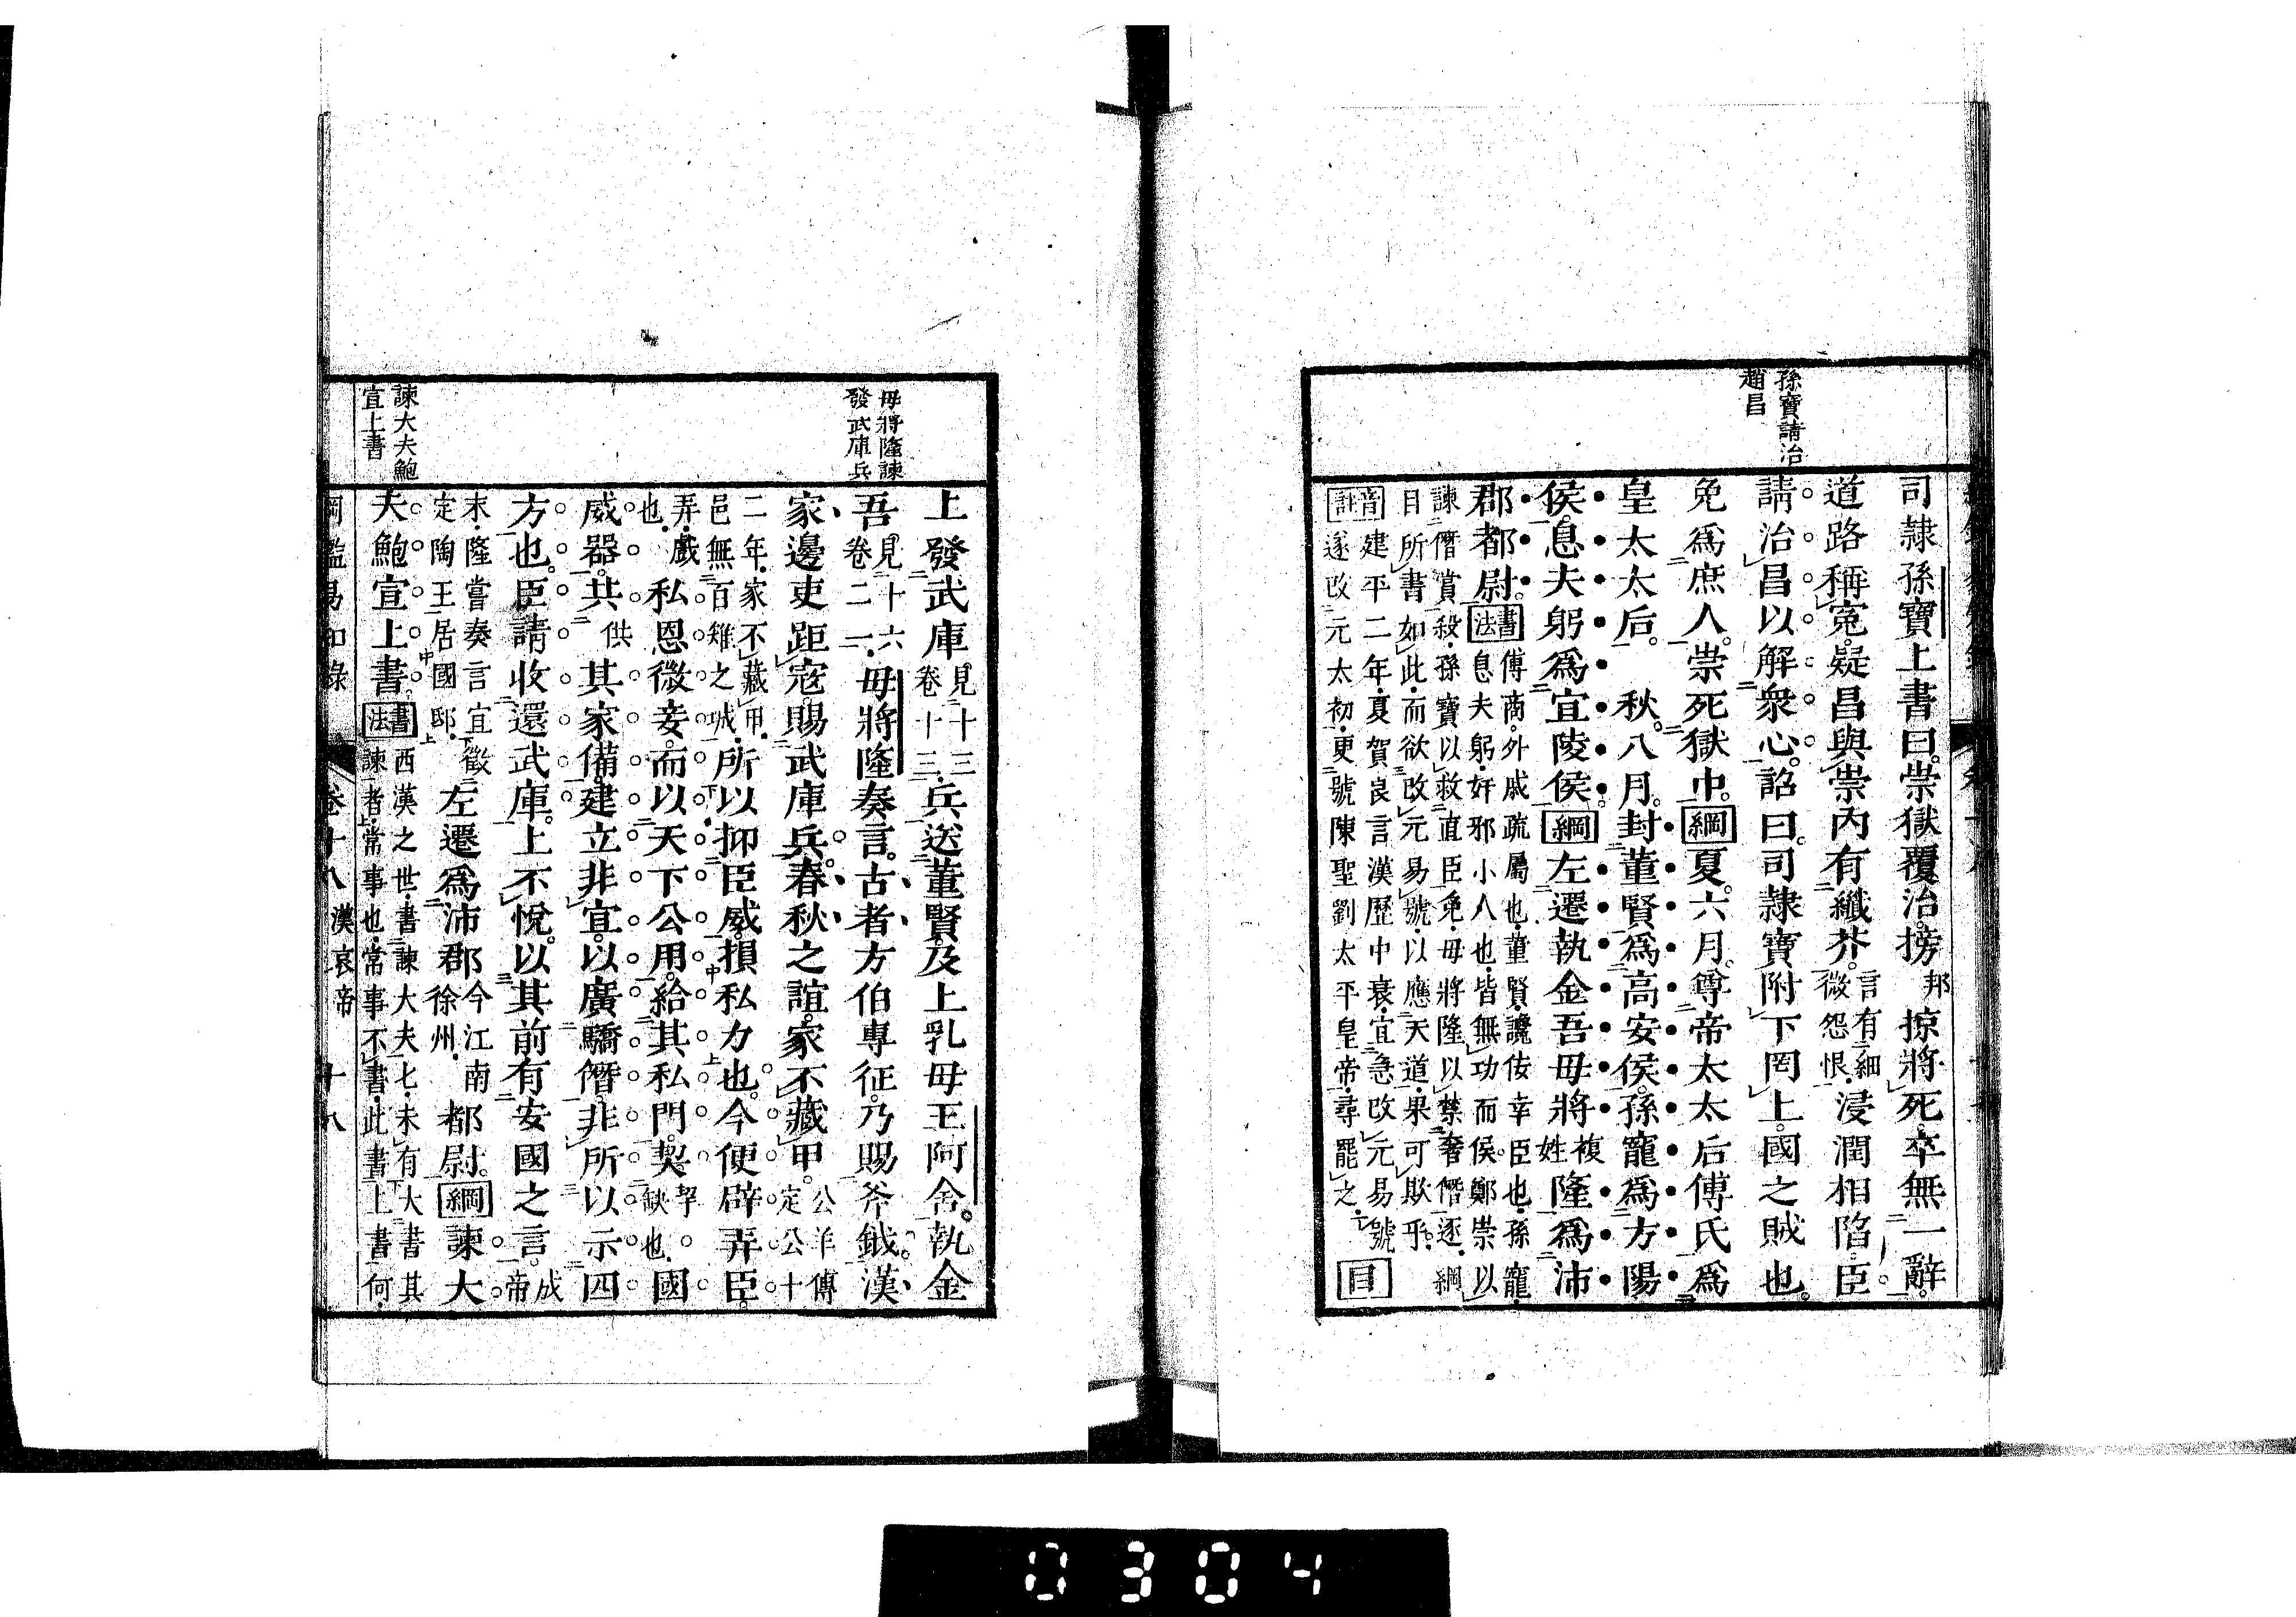 孫寶請治
趙昌
司隸孫寶上書曰。崇獄覆治。搒邦掠將死。卒無一辭。
道路稱冤。疑昌與崇內有纖芥。言有細微怨恨。浸潤相陷。臣
請治昌以解衆心。詔曰。司隸寶附下罔上。國之賊也。
免爲庶人。崇死獄中。綱夏。六月。尊帝太太后傅氏爲
皇太太后。秋。八月。封董賢爲高安侯。孫寵爲方陽
侯。息夫躬爲宜陵侯。綱左遷執金吾毋將複姓隆爲沛
郡都尉。書法傅商。外戚疏屬也。董賢。讒佞幸臣也。孫寵。
息夫躬。奸邪小人也。皆無功而侯。鄭崇以
諫僭賞殺。孫寶以救直臣免。毋將隆以禁奢僭逐。綱
目所書如此。而欲改元易號。以應天道。果可欺乎。
音註建平二年。夏賀良言漢歷中衰。宜急改元易號。
遂改元太初。更號陳聖劉太平皇帝。尋罷之。目
毋將隆諫
發武庫兵
上發武庫見十三卷十三。兵送董賢及上乳母王阿舍。執金
吾見十六卷二一。毋將隆奏言。古者方伯專征。乃賜斧鉞。漢
家邊吏距寇。賜武庫兵。春秋之誼。家不藏甲。公羊傳定公十
二年。家不藏甲。邑無百雉之城。所以抑臣威。損私力也。今便辟弄臣。
弄。戲也。私恩微妾。而以天下公用。給其私門。契挈缺也。國
威器。共供其家備。建立非宜。以廣驕僭。非所以示四
方也。臣請收還武庫。上不悅。以其前有安國之言。成帝
末。隆嘗奏言宜徵定陶王居國邸。左遷爲沛郡今江南徐州。都尉。綱諫大
夫鮑宣上書。書法西漢之世。書諫大夫七。未有大書其
諫者。常事也。常事不書。此書上書何。
諫大夫鮑
宣上書
綱鑑易知錄 卷十八 漢哀帝 十八
0304